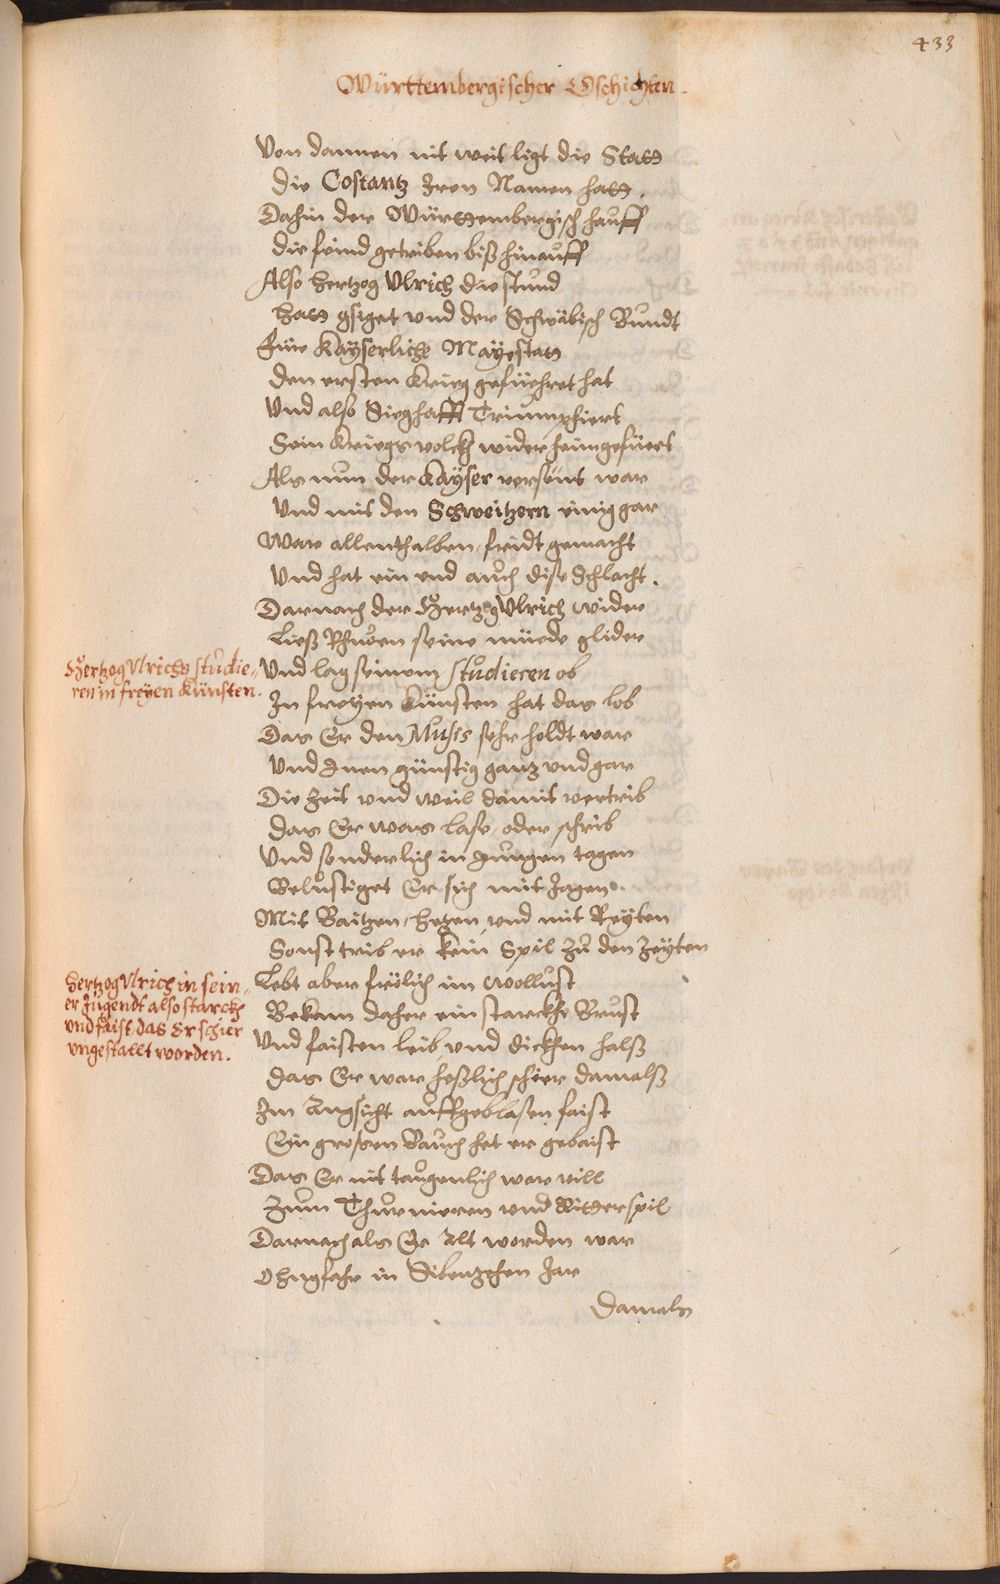 433
Württembergischer Gschichten.
Von dannen nit weit ligt die Statt
Die Costantz Iren Namen hatt.
Dahin der Württembergisch hauff
die feind getriben biß hinauff
Also hertzog Ulrich die stund
Hatt gsiget und der Schwäbisch Bundt
Für Kayserliche Mayestatt
den ersten Krieg gefüehret hat
Und also Sieghafft Triumphiert
Sein Kriegsvolckh wider heimgefüert
Als nun der Kayser versönt war
Und mit den Schweitzern einig gar
War allenthalben fridt gemacht
Und hat ein end auch dise Schlacht.
Darnach der Hertzog Ulrich wider
Ließ Rhuen seine müede glider
Hertzog Ulrichs studie-
ren in freyen Künsten.
Und lag seinem studieren ob
In freyen Künsten hat das lob
Das Er den Musis sehr holdt war
Und Inen günstig gantz und gar
Die Zeit und weil damit vertrib
Das Er was lase, oder schrib
Und sonderlich in Jungen tagen
Belustiget Er sich mit Jagen.
Mit Baitzen, Hetzen, und mit Reyten
Sonst trib er kein Spil zu den Zeyten
Hertzog Ulrich in sein-
er Jugendt also starckh
und faist, das Er schier
ungestallt worden.
Lebt aber frölich im wollust
Bekam daher ein starckhe Brust
Und faisten leib, und dickhen halß
Das Er war heßlich schier damalß
Im Angsicht auffgeblasen faist
Ein grossen Bauch hat er
Das Er nit taugenlich war vill
Zum Thurnieren und Ritterspil
Darnach als Er Alt worden war
Ohngfahr in Sibenzehen Jar
Damals